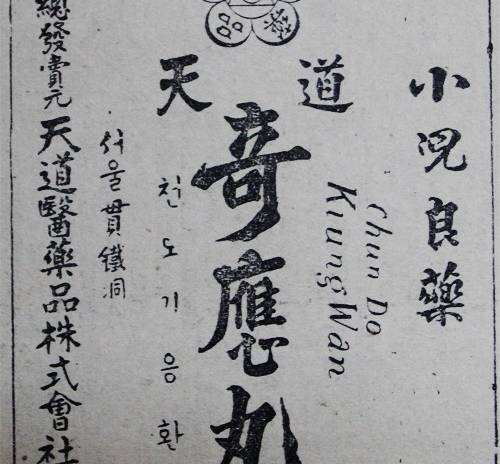 小児良藥
天道
Chun Do
Kiung Wan
奇應丸
천도기응환
서울貫鐵洞
總發賣元 天道醫藥品株式會社